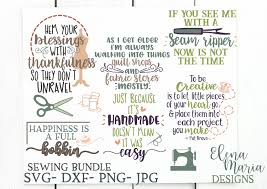 HEM YOUR
blessings
WITH
thankfulness
SO THEY DON'T
UNRAVEL
HAPPINESS IS
A FULL
bobbin
AS I GET OLDER
I'M ALWAYS
WALKING INTO THINGS
quilt shops
and
fabric stores
mostly!
JUST BECAUSE
IT'S
HANDMADE
DOESN'T MEAN
IT WAS
easy
IF YOU SEE ME
WITH A
seam ripper
NOW IS NOT
THE TIME
To be
Creative
is to let little pieces
of your heart go,
& place them into
each project
you make
SEWING BUNDLE
SVG- DXF- PNG- JPG
Elena
Maria
DESIGNS